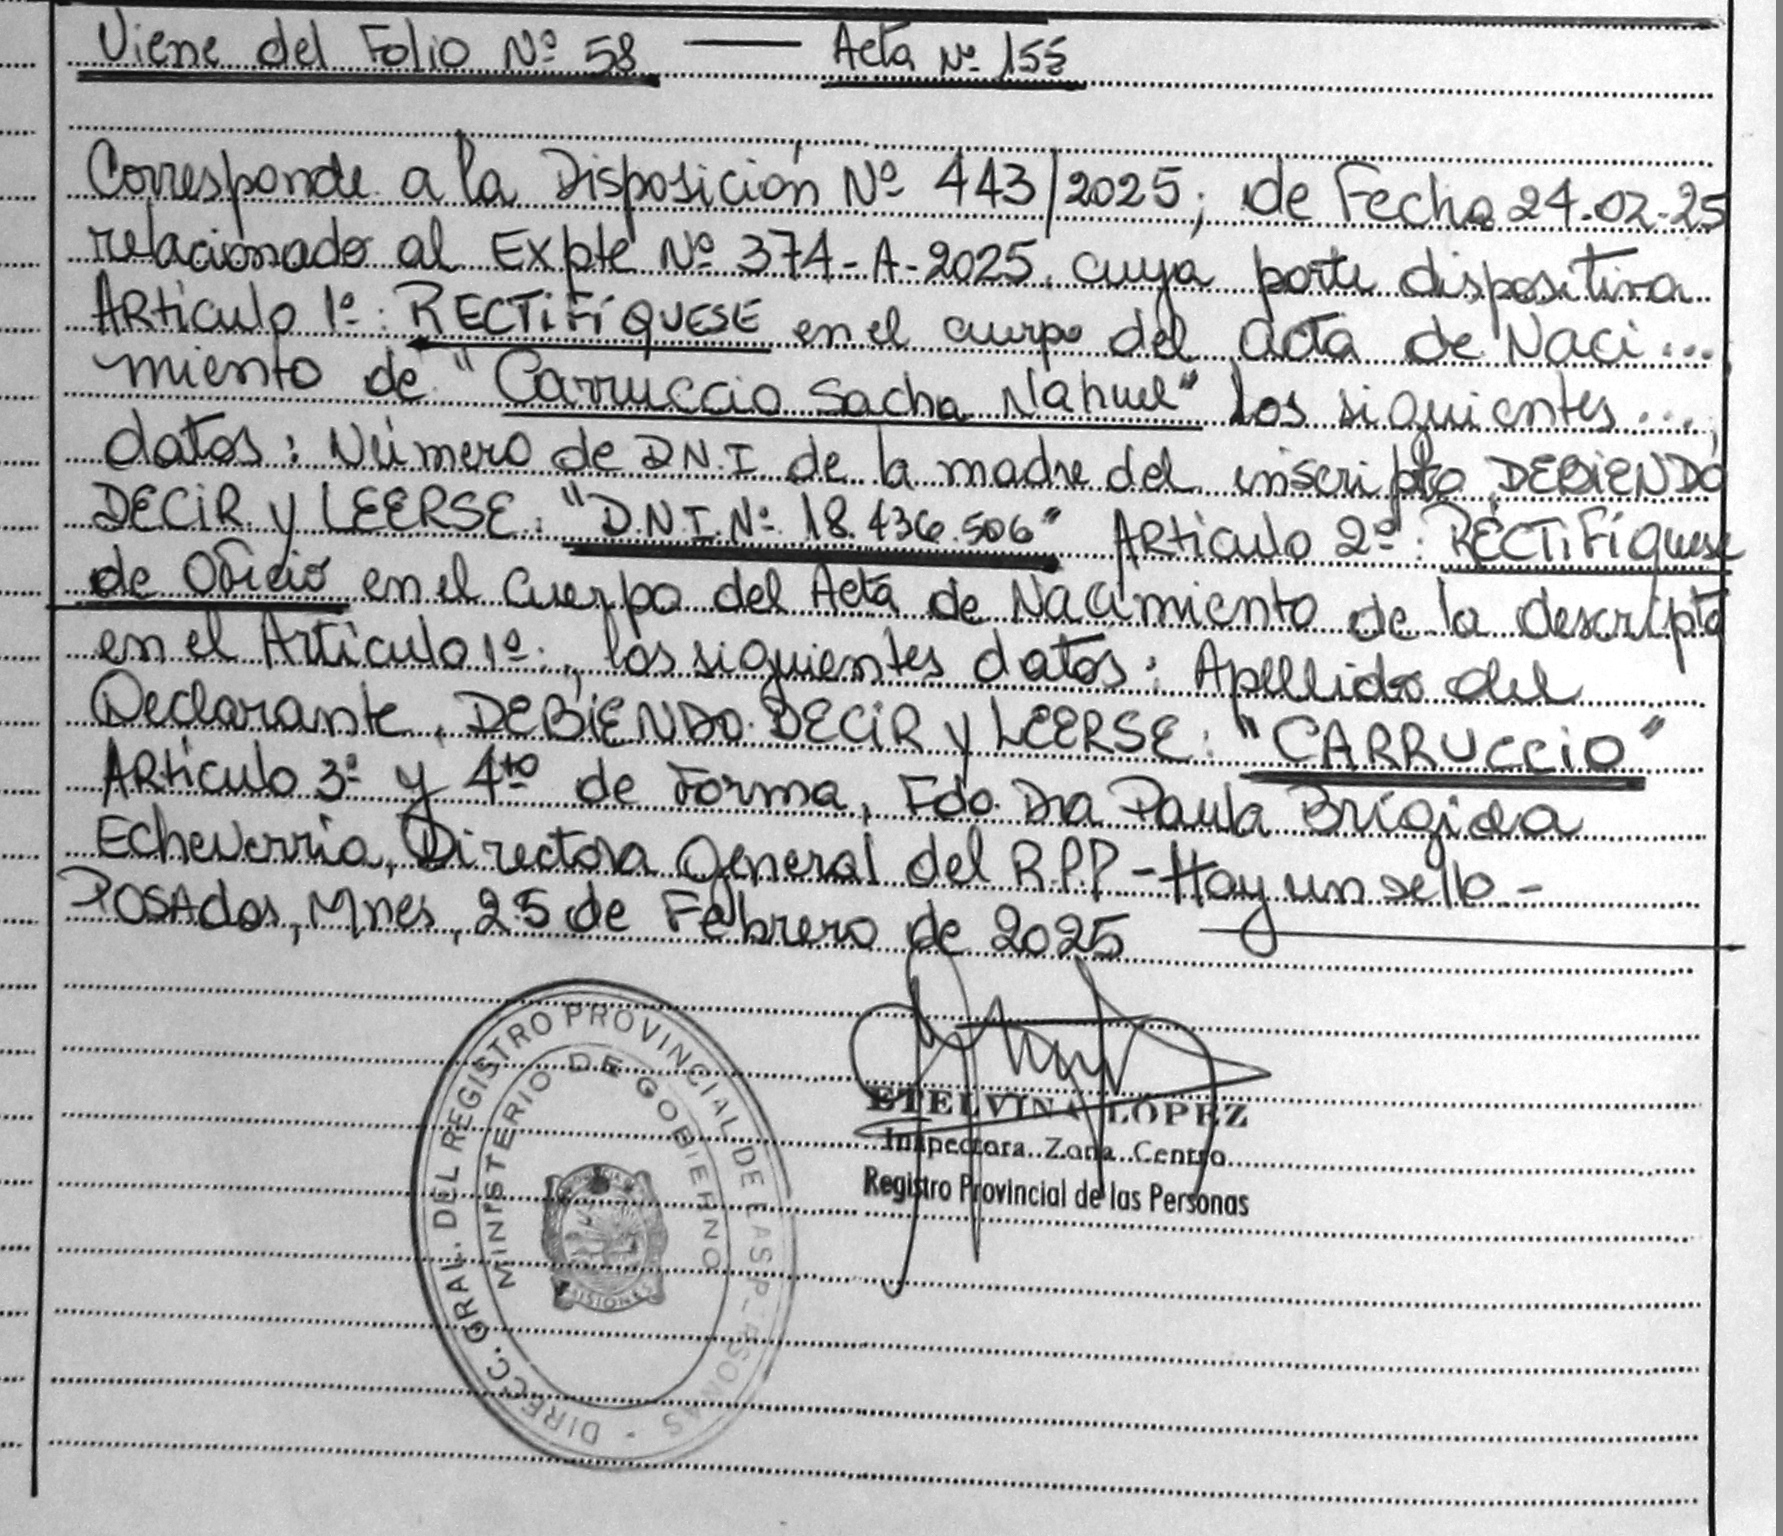 Viene del Folio Nº 58 — Acta Nº 155
Corresponde a la Disposición Nº 443/2025; de Fecha 24-02-25
relacionado al Expte Nº 374-A-2025, cuya parte dispositiva
Artículo 1º: RECTIFÍQUESE en el cuerpo del acta de Naci...
miento de "Carruccio Sacha Nahuel" los siguientes...,
datos: Número de D.N.I de la madre del inscripto DEBIENDO
DECIR y LEERSE: "D.N.I. Nº 18.436.506" Artículo 2º: RECTIFÍquese
de Oficio en el Cuerpo del Acta de Nacimiento de la descripta
en el Artículo 1º:, los siguientes datos: Apelllido del
Declarante, DEBIENDO DECIR y LEERSE: "CARRUCCIO"
Artículo 3º y 4to de Forma, Fdo. Dra Paula Brígida
Echeverría, Directora General del R.P.P - Hay un sello -
POSAdas, Mnes, 25 de Febrero de 2025
DIRECC. GRAL. DEL REGISTRO PROVINCIAL DE LAS PERSONAS
MINISTERIO DE GOBIERNO
MISIONES
ETELVINA LOPEZ
Inspectora Zona Centro
Registro Provincial de las Personas